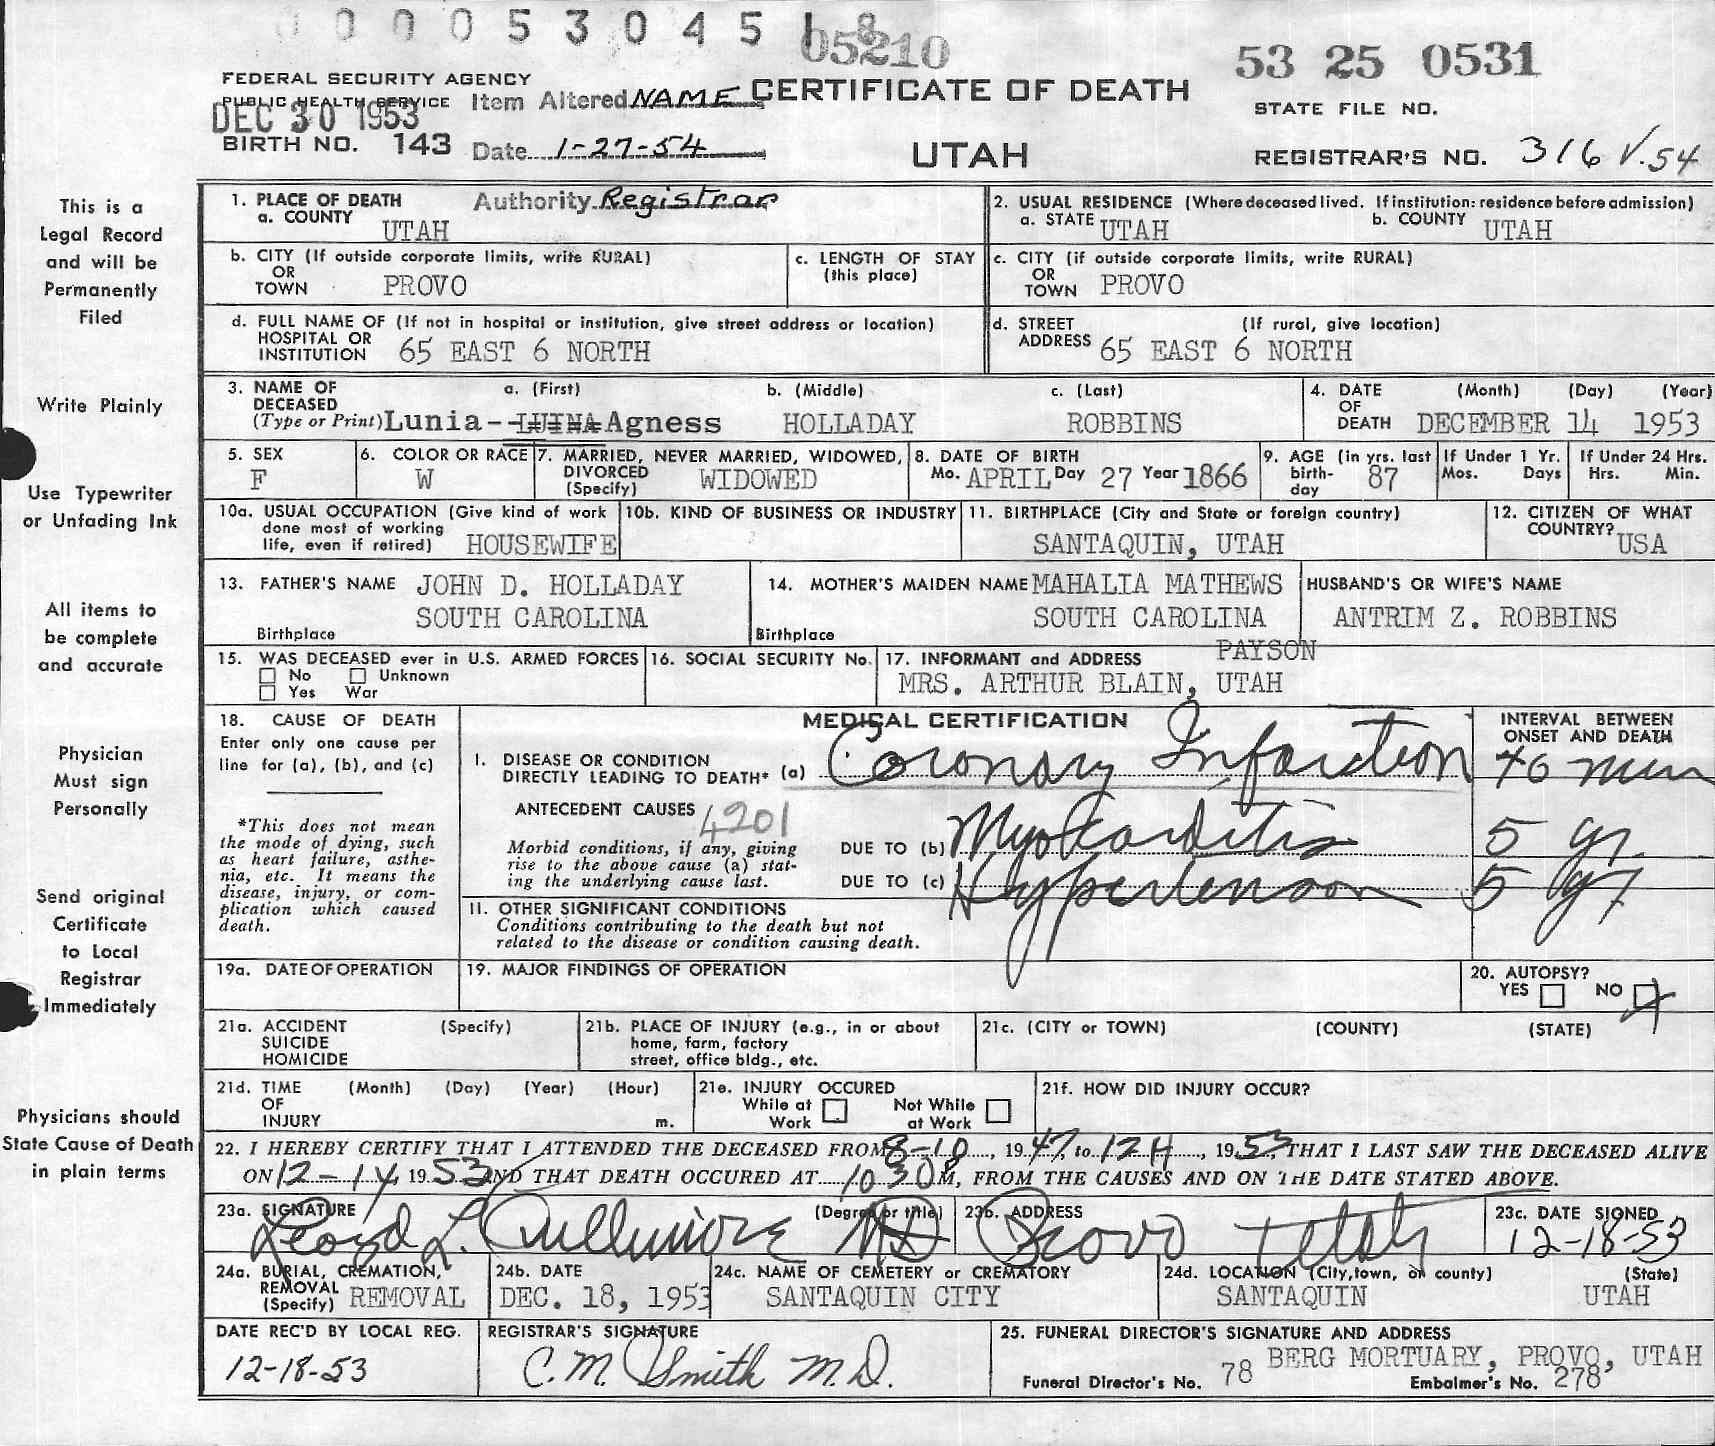 0 0 0 0 5 3 0 4 5 1 8
05210
53 25 0531
FEDERAL SECURITY AGENCY
PUBLIC HEALTH SERVICE Item Altered NAME CERTIFICATE OF DEATH
STATE FILE NO.
DEC 30 1953
BIRTH NO. 143 Date 1-27-54 UTAH REGISTRAR'S NO. 316 V.54
This is a
Legal Record
and will be
Permanently
Filed
1. PLACE OF DEATH Authority Registrar
a. COUNTY UTAH
2. USUAL RESIDENCE (Where deceased lived. If institution: residence before admission)
a. STATE UTAH b. COUNTY UTAH
b. CITY (If outside corporate limits, write RURAL)
OR
TOWN PROVO
c. LENGTH OF STAY
(this place)
c. CITY (if outside corporate limits, write RURAL)
OR
TOWN PROVO
d. FULL NAME OF (If not in hospital or institution, give street address or location)
HOSPITAL OR
INSTITUTION 65 EAST 6 NORTH
d. STREET (If rural, give location)
ADDRESS 65 EAST 6 NORTH
Write Plainly
3. NAME OF a. (First) b. (Middle) c. (Last)
DECEASED
(Type or Print) Lunia- LUINA Agness HOLLADAY ROBBINS
4. DATE (Month) (Day) (Year)
OF
DEATH DECEMBER 14 1953
5. SEX
F
6. COLOR OR RACE
W
7. MARRIED, NEVER MARRIED, WIDOWED,
DIVORCED
(Specify) WIDOWED
8. DATE OF BIRTH
Mo. APRIL Day 27 Year 1866
9. AGE (in yrs. last
birth-
day 87
If Under 1 Yr.
Mos. Days
If Under 24 Hrs.
Hrs. Min.
Use Typewriter
or Unfading Ink
10a. USUAL OCCUPATION (Give kind of work
done most of working
life, even if retired) HOUSEWIFE
10b. KIND OF BUSINESS OR INDUSTRY
11. BIRTHPLACE (City and State or foreign country)
SANTAQUIN, UTAH
12. CITIZEN OF WHAT
COUNTRY? USA
All items to
be complete
and accurate
13. FATHER'S NAME JOHN D. HOLLADAY
SOUTH CAROLINA
Birthplace
14. MOTHER'S MAIDEN NAME MAHALIA MATHEWS
SOUTH CAROLINA
Birthplace
HUSBAND'S OR WIFE'S NAME
ANTRIM Z. ROBBINS
15. WAS DECEASED ever in U.S. ARMED FORCES
No Unknown
Yes War
16. SOCIAL SECURITY No.
17. INFORMANT and ADDRESS PAYSON
MRS. ARTHUR BLAIN, UTAH
Physician
Must sign
Personally
18. CAUSE OF DEATH
Enter only one cause per
line for (a), (b), and (c)
*This does not mean
the mode of dying, such
as heart failure, asthe-
nia, etc. It means the
disease, injury, or com-
plication which caused
death.
MEDICAL CERTIFICATION
INTERVAL BETWEEN
ONSET AND DEATH
I. DISEASE OR CONDITION
DIRECTLY LEADING TO DEATH* (a) Coronary Infarction 40 min
ANTECEDENT CAUSES 4201
Morbid conditions, if any, giving
rise to the above cause (a) stat-
ing the underlying cause last.
DUE TO (b) Myocarditis 5 yr.
DUE TO (c) Hypertension 5 yr
II. OTHER SIGNIFICANT CONDITIONS
Conditions contributing to the death but not
related to the disease or condition causing death.
Send original
Certificate
to Local
Registrar
Immediately
19a. DATE OF OPERATION
19. MAJOR FINDINGS OF OPERATION
20. AUTOPSY?
YES NO
21a. ACCIDENT (Specify)
SUICIDE
HOMICIDE
21b. PLACE OF INJURY (e.g., in or about
home, farm, factory
street, office bldg., etc.
21c. (CITY or TOWN) (COUNTY) (STATE)
21d. TIME (Month) (Day) (Year) (Hour)
OF
INJURY m.
21e. INJURY OCCURED
While at Not While
Work at Work
21f. HOW DID INJURY OCCUR?
Physicians should
State Cause of Death
in plain terms
22. I HEREBY CERTIFY THAT I ATTENDED THE DECEASED FROM 8-10, 1947 to 12-14, 1953 THAT I LAST SAW THE DECEASED ALIVE
ON 12-14, 1953 AND THAT DEATH OCCURED AT 10 30 M, FROM THE CAUSES AND ON THE DATE STATED ABOVE.
23a. SIGNATURE (Degree or title)
Lloyd L. Cullimore MD
23b. ADDRESS
Provo Utah
23c. DATE SIGNED
12-18-53
24a. BURIAL, CREMATION,
REMOVAL
(Specify) REMOVAL
24b. DATE
DEC. 18, 1953
24c. NAME OF CEMETERY or CREMATORY
SANTAQUIN CITY
24d. LOCATION (City, town, or county) (State)
SANTAQUIN UTAH
DATE REC'D BY LOCAL REG.
12-18-53
REGISTRAR'S SIGNATURE
C. M. Smith M.D.
25. FUNERAL DIRECTOR'S SIGNATURE AND ADDRESS
BERG MORTUARY, PROVO, UTAH
Funeral Director's No. 78 Embalmer's No. 278